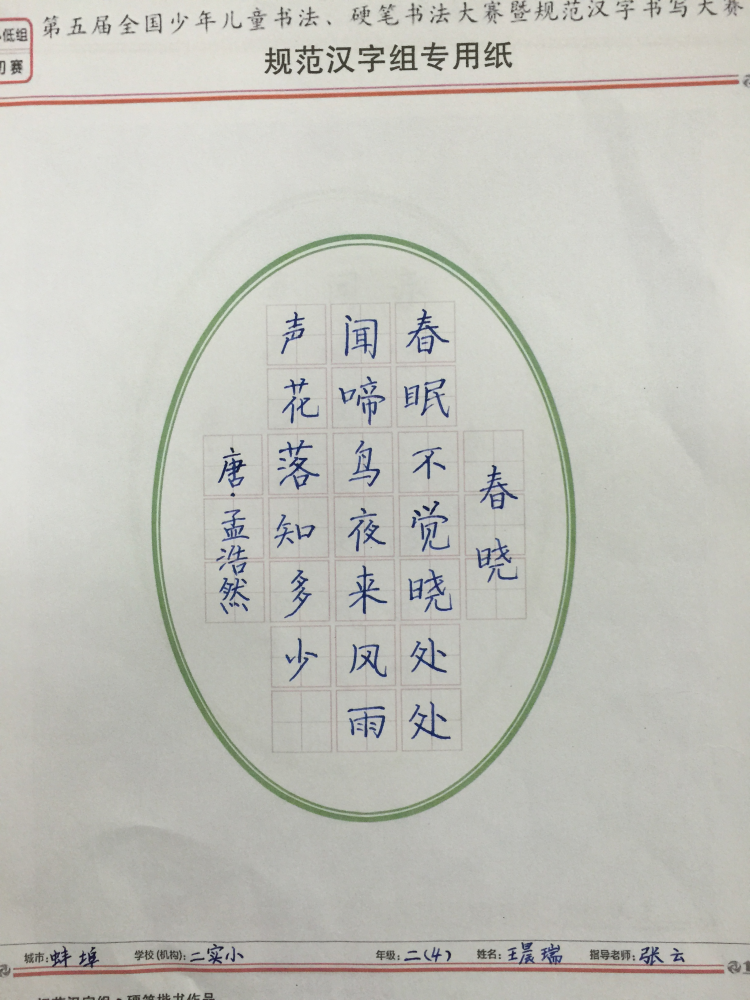 第五届全国少年儿童书法、硬笔书法大赛暨规范汉字书写大赛
低组
初赛
规范汉字组专用纸
春晓
春眠不觉晓处处
闻啼鸟夜来风雨
声花落知多少
唐·孟浩然
城市:蚌埠 学校(机构):二实小 年级:二(4) 姓名:王晨瑞 指导老师:张云
规范汉字组·硬笔楷书作品